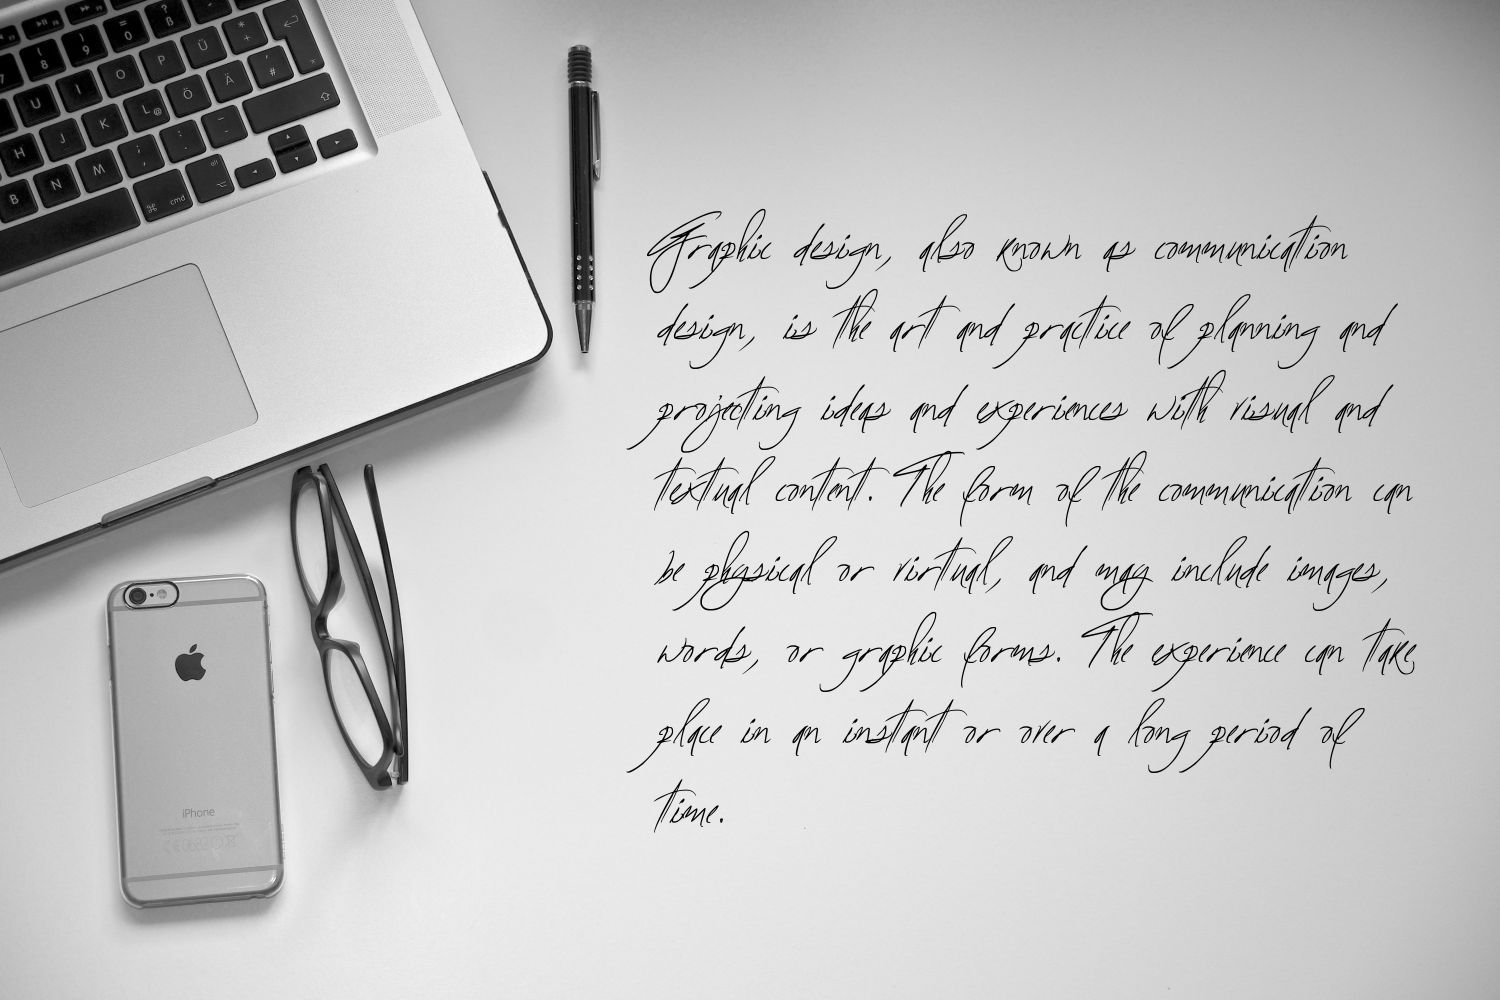 Graphic design, also known as communication
design, is the art and practice of planning and
projecting ideas and experiences with visual and
textual content. The form of the communication can
be physical or virtual, and may include images,
words, or graphic forms. The experience can take
place in an instant or over a long period of
time.
7 8 9 0 ß
U I O P Ü + #
H J K L @ Ö Ä
B N M ; , : . _ -
⌘ cmd alt
iPhone